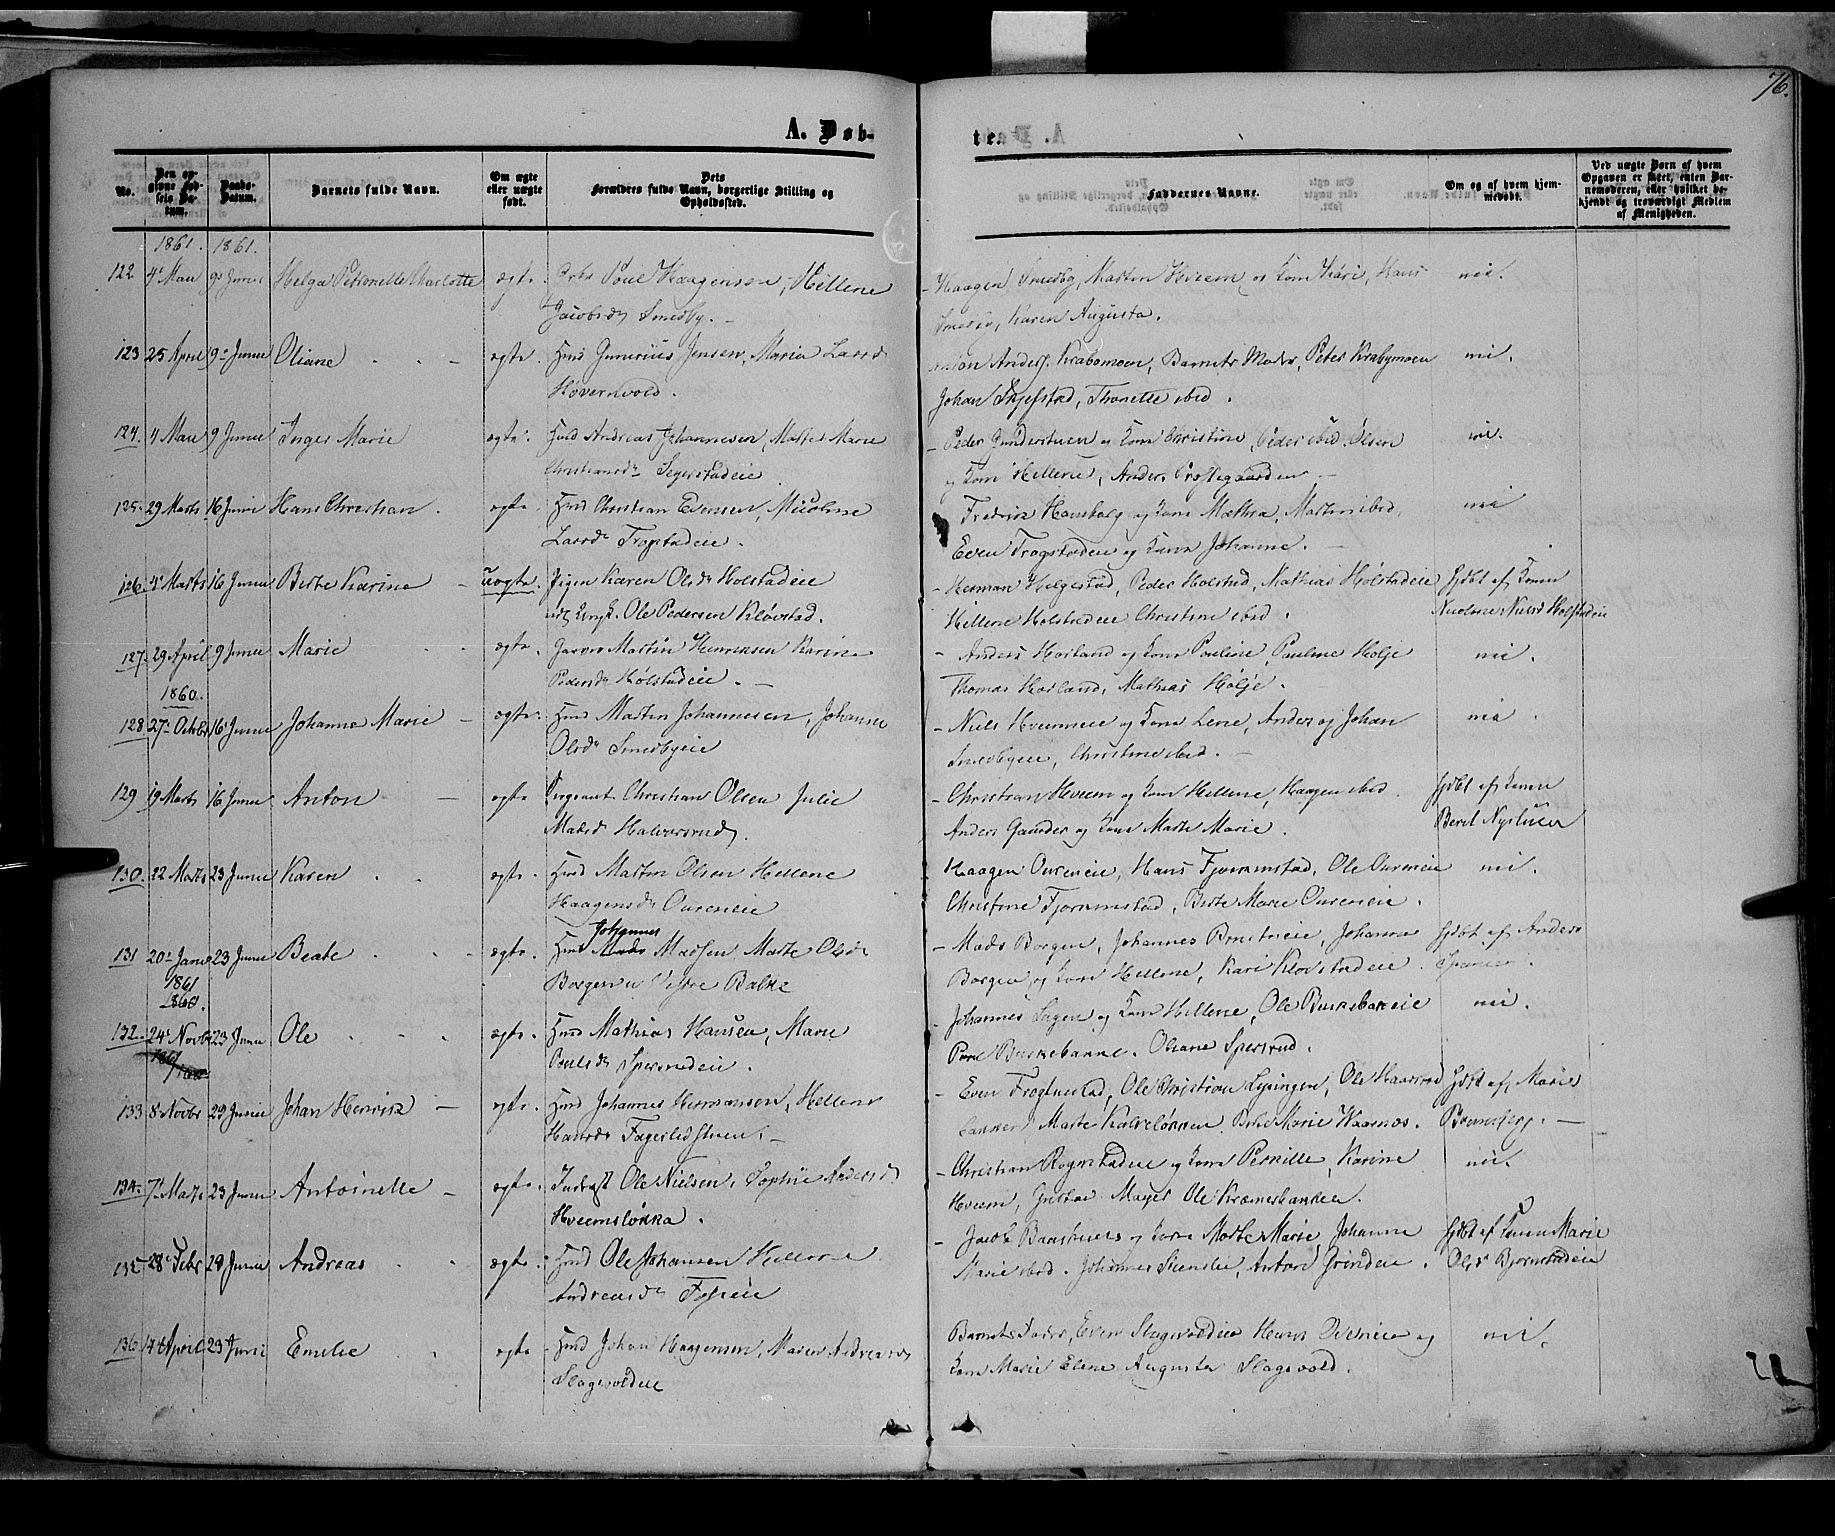 76.
A. Døb-
te.
No.
Den opgivne Fødsels Datum.
Daabs-Datum.
Barnets fulde Navn.
Om ægte eller uægte født.
Dets Forældres fulde Navn, borgerlige Stilling og Opholdssted.
Faddernes Navne.
Om og af hvem hjemmedøbt.
Ved uægte Børn af hvem Opgaven er skeet, enten Barnemoderen, eller hvilket bekjendt og troværdigt Medlem af Menigheden.
1861. 1861.
122 4de Mai 9de Juni Helga Petronelle Charlotte ægte. Poul Haagensen, Hellene
Jacobsd. Smedby. –
– Haagen Smedby, Martin Hveem og Kone Kari, Hans
Smedby, Karen Augusta.
nei.
123 25 April 9de Junie Oliane ægte. Huusmd Gunerius Jensen, Maria Larsd
Høvernvold.
Anders. Krabymoen, Barnets Moder, Peter Krabymoen
Johan Skjefstad, Thonette ibid.
nei.
124. 4 Mai 9 Junie Inger Marie ægte. Huusmd Andreas Johannesen, Marte Marie
Christiansdr Segerstadeie
– Peder Gunderstuen og Kone Christine, Peder ibid. Olsen
og Kone Hellene, Anders Præstegaarden –
nei.
125. 29 Marts 16 Juni Hans Christian. ægte. Huusmd Christian Evensen, Nicoline
Larsdr Trogstadeie.
Fredrik Hanshaug og Kone Mathea, Martin ibid,
Even Trogstadeie og Kone Johanne. –
nei
126. 4de Marts 16 Junie Birte Karine – Uægte. Pigen Karen Olsdr Holstadeie
Ungk. Ole Pedersen Kløvstad.
– Herman Helgestad, Peder Holstad, Mathias Holstadeie
Hellene Holstadeie Christine ibid.
Hjdbt af Konen
Nicoline Nielsd Holstadeie
127. 29 April 9 Junie Marie ægte. Garver Martin Henriksen Karine
Pedersdr Holstadeie. –
– Anders Horland og Kone Pauline, Pauline Holje
Thomas Horland, Mathias Holje.
nei.
1860.
128. 27de Octobr 16de Junie Johanne Marie – ægte. Huusmd Martin Johannesen, Johanne
Olsdr Smedbyeie
– Niels Hveemeie og Kone Lene, Anders og Johan
Smedbyeie, Christine ibid. –
nei.
129 19 Marts 16 Junie Anton – ægte Sergeant Christian Olsen Julie
Madsd Halvorsrud.
– Christian Hveem og Kone Hellene, Haagen ibid.
Anders Gaarder og Kone Marte Marie.
hjdbt af Konen
Berit Nystuen
130. 22 Marts 23 Junie Karen ægte. Huusmd Martin Olsen Hellene
Haagensdr Oureneie
Haagen Oureneie, Hans Fjørkenstad, Ole Oureneie
Christine Fjørkenstad, Birte Marie Oureneie.
nei.
131 20de Janr 23 Junie Beate ægte. Huusmd Mads Johannes Madsen Marte Olsdr
Borgen Vestre Balke
1861
– Mads Borgen, Johannes, Johanna
Borgen og Kone Hellene, Kari Klovstadeie.
hjdbt af Anders
1860.
132. 24de Novbr 23 Junie Ole ægte. Huusmd Mathias Hansen, Marie
Poulsdr Spersrudeie.
– Johannes Sagen og Kone Hellene, Ole Buskebakeie
Buskebakke. Oliane Spersrud.
nei.
133 8 Novbr 29 Junie Johan Henrik – ægte. Huusmd Johannes Hermansen, Hellene
Hansdr Fagerlidstuen. –
Even Frogtnestad, Ole Christian Lysingen, Ole Haarsrud
Bakken, Marte Kalveløkken. Birte Marie Waarnos.
Hjdbt af Marie
Brunsberg. –
134. 7de Marts 23 Junie Antoinette – ægte. Inderst Ole Nielsen, Sophie Andersd
Hveemsløkka.
– Christian Rognstadeie og Kone Pernille, Karine
Hveem, Gustav Mager Ole Kræmerbakken.
nei.
135 28de Febr 29 Junie Andreas ægte. Huusmd Ole Johansen Hellene
Andreasdr Fossеie
– Jacob Baashuus og Kone Marte Marie Johanne
Marie ibid. Johannes Stenslie, Anton Grindeie.
hjdbt af Konen Marie
Olsdr Bjørnstadeie
136 14de April 23 Juni Emilie ægte – Huusmd Johan Haagensen, Maren Andreasd
Slagsvoldeie
Barnets Fader, Even Slagsvoldeie Hans Overeie og
Kone Marie Elene Augusta Slagsvold.
nei.